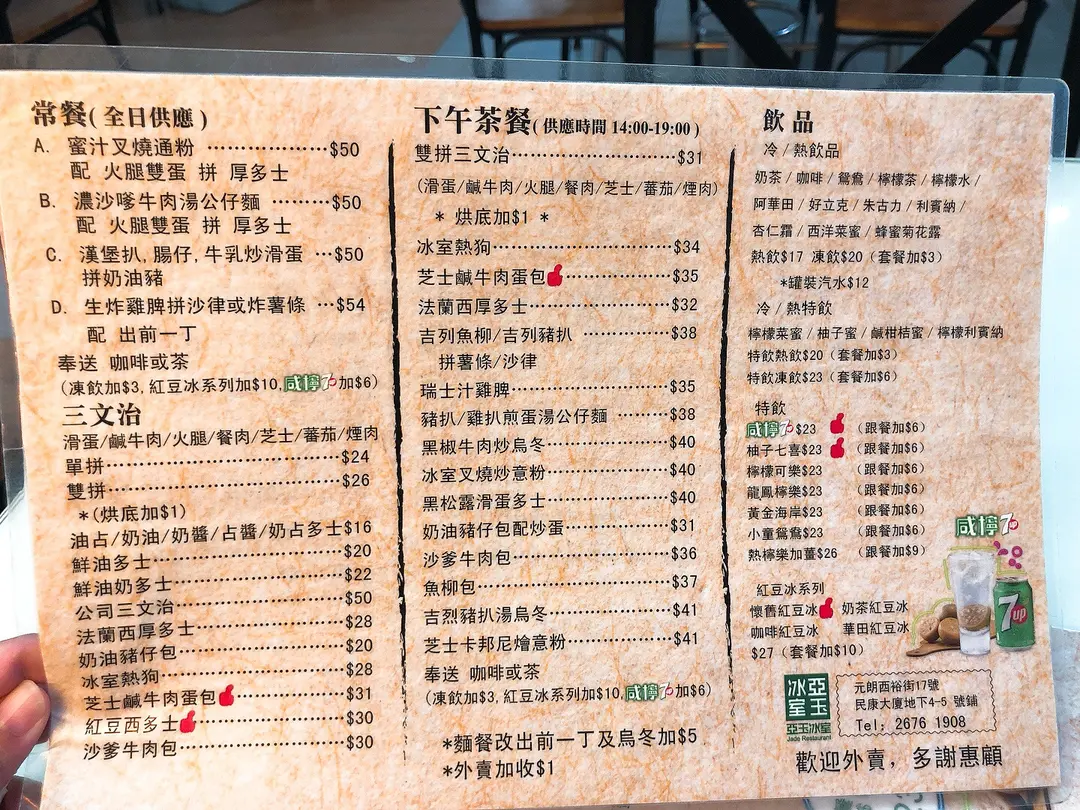 常餐(全日供應)
A. 蜜汁叉燒通粉 ………………$50
配 火腿雙蛋 拼 厚多士
B. 濃沙嗲牛肉湯公仔麵 ………$50
配 火腿雙蛋 拼 厚多士
C. 漢堡扒,腸仔,牛乳炒滑蛋 …$50
拼奶油豬
D. 生炸雞脾拼沙律或炸薯條 …$54
配 出前一丁
奉送 咖啡或茶
(凍飲加$3,紅豆冰系列加$10,咸檸7加$6)
三文治
滑蛋/鹹牛肉/火腿/餐肉/芝士/蕃茄/煙肉
單拼………………………………$24
雙拼………………………………$26
*(烘底加$1)
油占/奶油/奶醬/占醬/奶占多士$16
鮮油多士…………………………$20
鮮油奶多士………………………$22
公司三文治………………………$50
法蘭西厚多士……………………$28
奶油豬仔包………………………$20
冰室熱狗…………………………$28
芝士鹹牛肉蛋包…………………$31
紅豆西多士………………………$30
沙爹牛肉包………………………$30
下午茶餐(供應時間 14:00-19:00)
雙拼三文治………………………$31
(滑蛋/鹹牛肉/火腿/餐肉/芝士/蕃茄/煙肉)
* 烘底加$1 *
冰室熱狗…………………………$34
芝士鹹牛肉蛋包…………………$35
法蘭西厚多士……………………$32
吉列魚柳/吉列豬扒 ……………$38
拼薯條/沙律
瑞士汁雞脾………………………$35
豬扒/雞扒煎蛋湯公仔麵 ………$38
黑椒牛肉炒烏冬…………………$40
冰室叉燒炒意粉…………………$40
黑松露滑蛋多士…………………$40
奶油豬仔包配炒蛋………………$31
沙爹牛肉包………………………$36
魚柳包……………………………$37
吉烈豬扒湯烏冬…………………$41
芝士卡邦尼燴意粉………………$41
奉送 咖啡或茶
(凍飲加$3,紅豆冰系列加$10,咸檸7加$6)
*麵餐改出前一丁及烏冬加$5
*外賣加收$1
飲品
冷/熱飲品
奶茶/咖啡/鴛鴦/檸檬茶/檸檬水/
阿華田/好立克/朱古力/利賓納/
杏仁霜/西洋菜蜜/蜂蜜菊花露
熱飲$17 凍飲$20(套餐加$3)
*罐裝汽水$12
冷/熱特飲
檸檬菜蜜/柚子蜜/鹹柑桔蜜/檸檬利賓納
特飲熱飲$20(套餐加$3)
特飲凍飲$23(套餐加$6)
特飲
咸檸7 $23 (跟餐加$6)
柚子七喜$23 (跟餐加$6)
檸檬可樂$23 (跟餐加$6)
龍鳳檸樂$23 (跟餐加$6)
黃金海岸$23 (跟餐加$6)
小童鴛鴦$23 (跟餐加$6)
熱檸樂加薑$26 (跟餐加$9)
咸檸7
7up
紅豆冰系列
懷舊紅豆冰 奶茶紅豆冰
咖啡紅豆冰 華田紅豆冰
$27(套餐加$10)
亞玉冰室
亞玉冰室
Jade Restaurant
元朗西裕街17號
民康大廈地下4-5 號鋪
Tel: 2676 1908
歡迎外賣，多謝惠顧